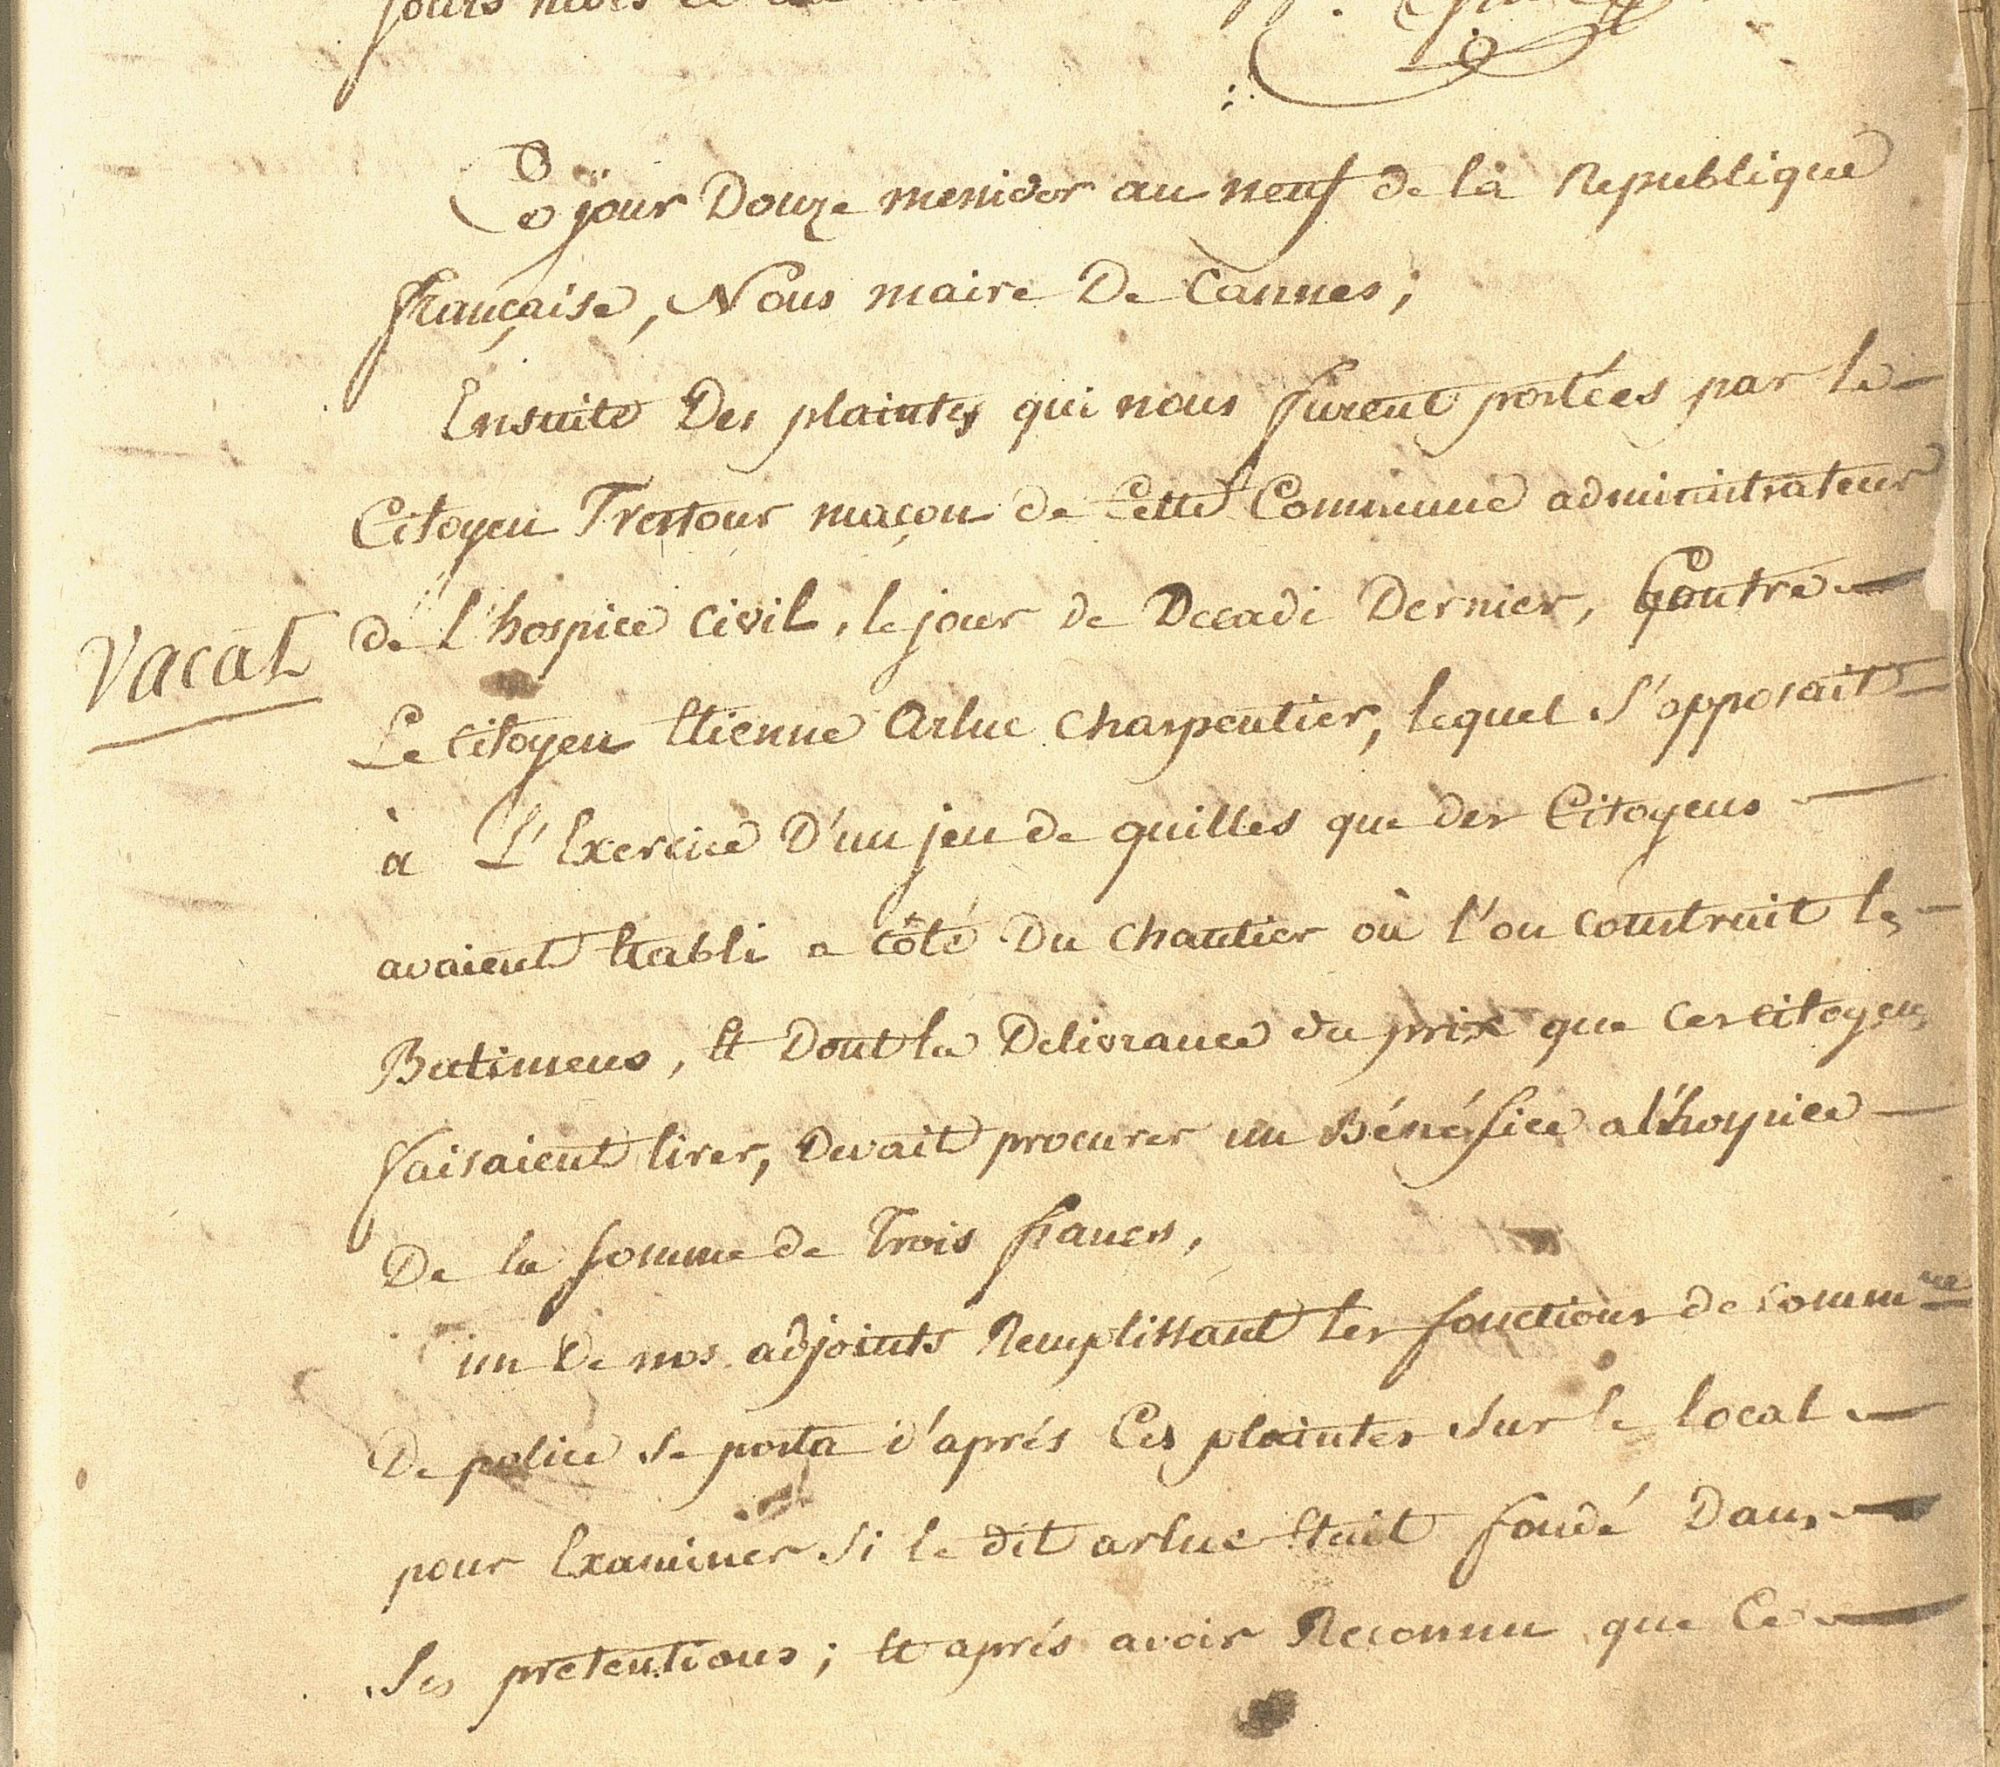 Ce jour Douze mesidor an neuf de la Republique
française, Nous maire De Cannes;
Ensuite Des plaintes qui nous furent portées par le
Citoyen Trestour maçon de Cette Commune administrateur
de L'hospice civil, le jour de Decadi Dernier, Contre
Vacat
Le citoyen Etienne Arluc charpentier, lequel s'opposait
à L'Exercice D'un jeu de quilles que des Citoyens
avaient Etabli a côté Du chantier où l'on construit les
Batimens, Et Dont la Delivrance du prix que ces citoyens
faisaient tirer, Devait procurer un Bénéfice a l'hospice
De la somme de Trois francs,
un De nos adjoints Remplissant les fonctions de commre
De police se porta d'après Ces plaintes sur le local
pour Examiner si le dit arluc Etait fondé Dans
ses pretentions; Et après avoir Reconnu que Ce